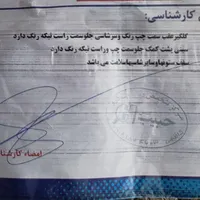 کارشناسی:
گلگیر عقب سمت چپ رنگ وسرشاسی جلوسمت راست لیکه رنگ دارد
سینی پشت کمک جلوسمت چپ وراست لیکه رنگ دارد
سقف ستونهاوسایر شاسیهاسلامت می باشد
امضاء کارشناس